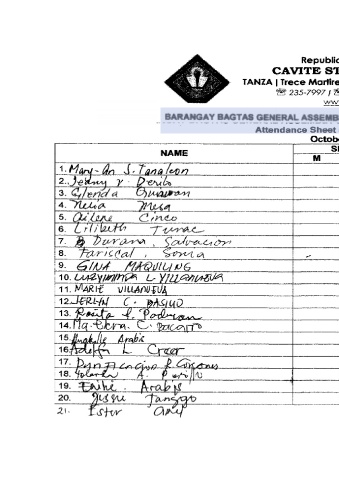 Republic
CAVITE ST
TANZA | Trece Martire
☏ 235-7997 |
www
BARANGAY BAGTAS GENERAL ASSEMB
Attendance Sheet
Octobe
NAME
M
1. Mary-An S. Tanaleon
2. Jenny V. Deribo
3. Glenda
4. Nelia Mesa
5. Ailene Cinco
6. Lilibeth Tunac
7. B Durana, Salvacion
8. Fariscal, Sonia
9. GINA MAQUILING
10. LUZVIMINDA L. VILLANUEVA
11. MARIE VILLANUEVA
12. JERLYN C. BASILIO
13. Rosita P. Padrian
14. Ma. Elena C. Bacarro
15. Anabelle Arabis
16. Adelfa L. Creer
17. R.
18. Yolanda A.
19. Arabis
20. Jesus Tanggo
21. Ester